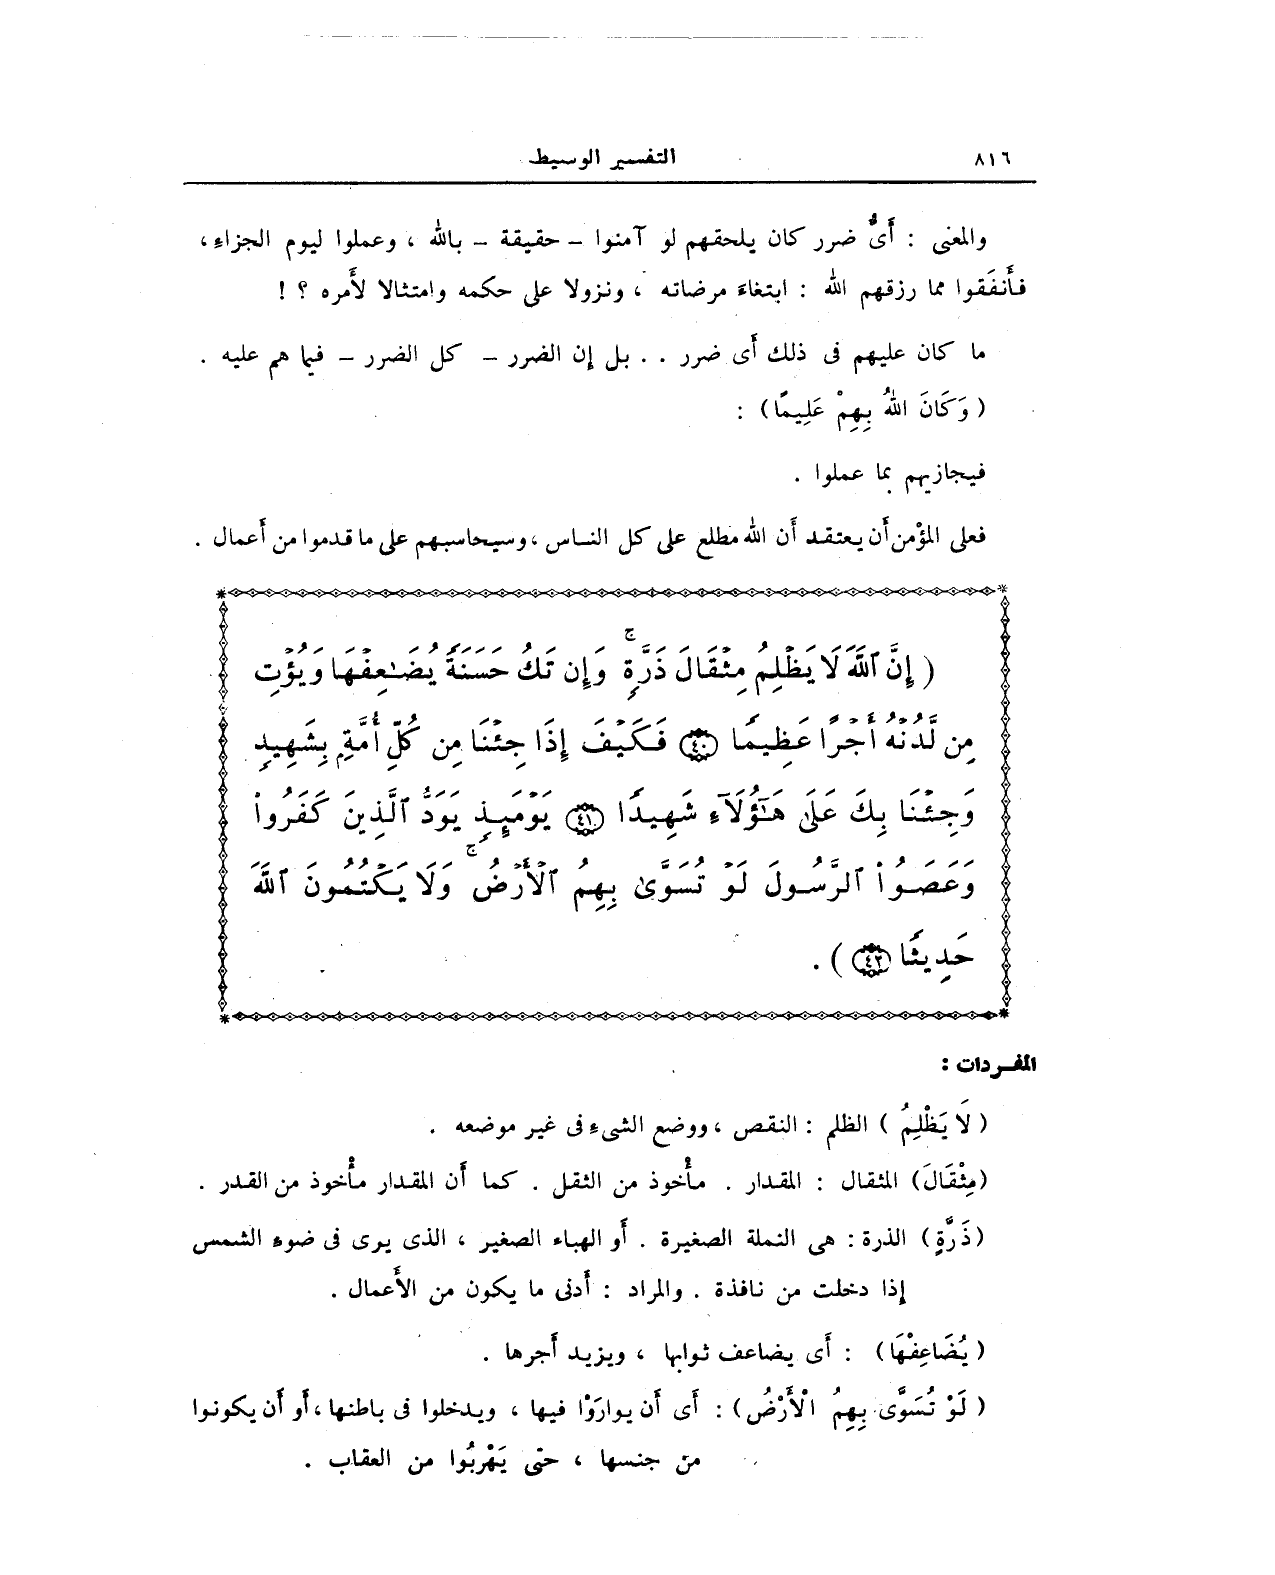 ٨١٦ التفسير الوسيط
والمعنى : أَىُّ ضرر كان يلحقهم لو آمنوا – حقيقة – بالله ، وعملوا ليوم الجزاءِ ،
فأَنفَقوا مما رزقهم الله : ابتغاءَ مرضاته ، ونزولا على حكمه وامتثالا لأَمره ؟ !
ما كان عليهم فى ذلك أَى ضرر . . بل إن الضرر – كل الضرر – فيما هم عليه .
( وَكَانَ اللهُ بِهِمْ عَلِيمًا ) :
فيجازيهم بما عملوا .
فعلى المؤْمن أَن يعتقد أَن الله مطلع على كل الناس ، وسيحاسبهم على ما قدموا من أَعمال .
( إِنَّ ٱللَّهَ لَا يَظْلِمُ مِثْقَالَ ذَرَّةٍ ۖ وَإِن تَكُ حَسَنَةً يُضَـٰعِفْهَا وَيُؤْتِ
مِن لَّدُنْهُ أَجْرًا عَظِيمًا ﴿٤٠﴾ فَكَيْفَ إِذَا جِئْنَا مِن كُلِّ أُمَّةٍۭ بِشَهِيدٍ
وَجِئْنَا بِكَ عَلَىٰ هَـٰٓؤُلَآءِ شَهِيدًا ﴿٤١﴾ يَوْمَئِذٍ يَوَدُّ ٱلَّذِينَ كَفَرُوا۟
وَعَصَوُا۟ ٱلرَّسُولَ لَوْ تُسَوَّىٰ بِهِمُ ٱلْأَرْضُ ۚ وَلَا يَكْتُمُونَ ٱللَّهَ
حَدِيثًا ﴿٤٢﴾ ) .
المفـردات :
( لَا يَظْلِمُ ) الظلم : النقص ، ووضع الشىءِ فى غير موضعه .
( مِثْقَالَ ) المثقال : المقدار . مأْخوذ من الثقل . كما أَن المقدار مأْخوذ من القدر .
( ذَرَّةٍ ) الذرة : هى النملة الصغيرة . أَو الهباء الصغير ، الذى يرى فى ضوءِ الشمس
إذا دخلت من نافذة . والمراد : أَدنى ما يكون من الأَعمال .
( يُضَاعِفْهَا ) : أَى يضاعف ثوابها ، ويزيد أَجرها .
( لَوْ تُسَوَّى بِهِمُ الْأَرْضُ ) : أَى أَن يوارَوْا فيها ، ويدخلوا فى باطنها ، أَو أَن يكونوا
من جنسها ، حتى يَهْرُبُوا من العقاب .